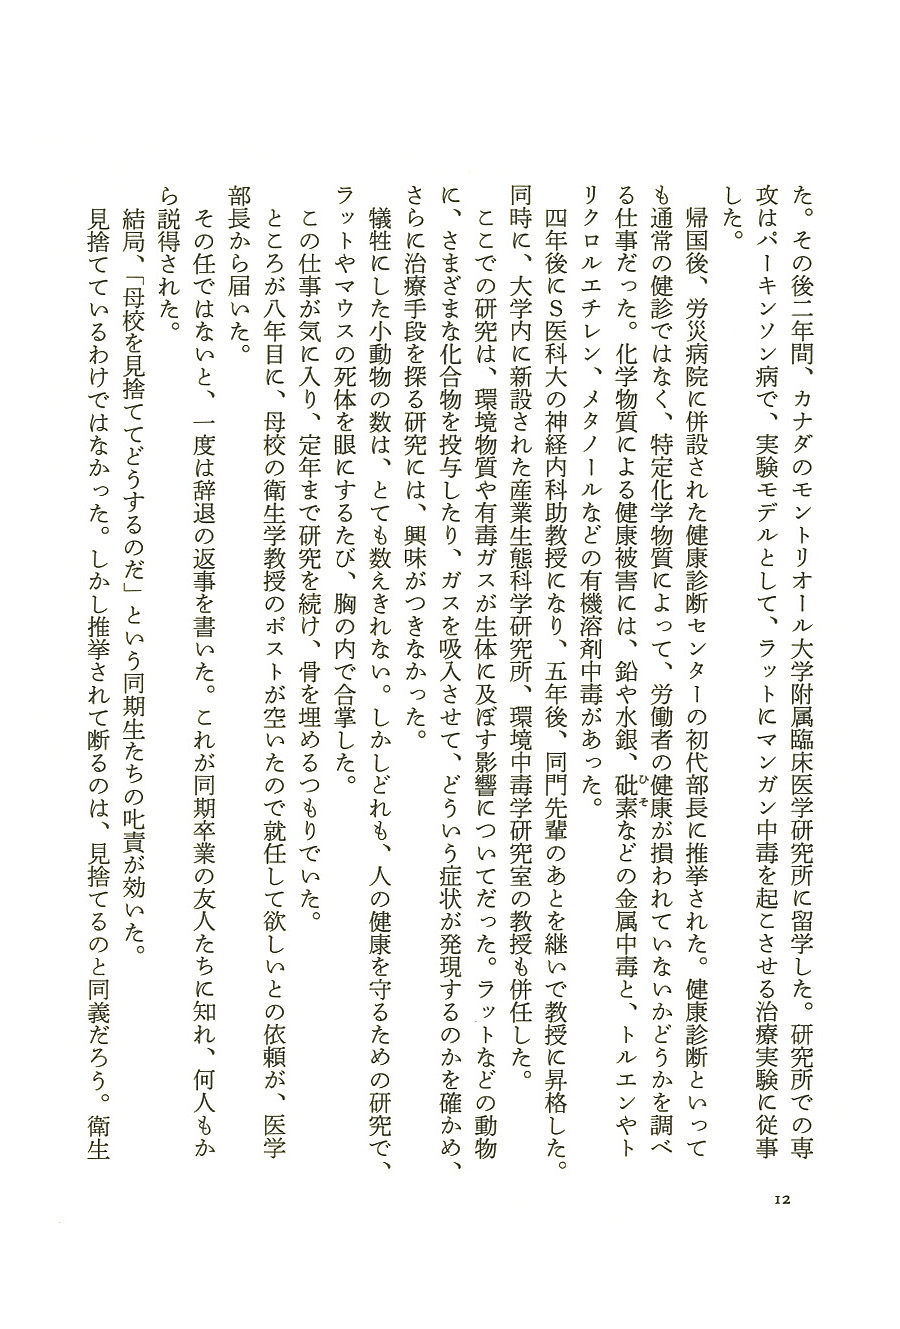 た。その後二年間、カナダのモントリオール大学附属臨床医学研究所に留学した。研究所での専
攻はパーキンソン病で、実験モデルとして、ラットにマンガン中毒を起こさせる治療実験に従事
した。
帰国後、労災病院に併設された健康診断センターの初代部長に推挙された。健康診断といって
も通常の健診ではなく、特定化学物質によって、労働者の健康が損われていないかどうかを調べ
る仕事だった。化学物質による健康被害には、鉛や水銀、砒素などの金属中毒と、トルエンやト
ひそ
リクロルエチレン、メタノールなどの有機溶剤中毒があった。
四年後にS医科大の神経内科助教授になり、五年後、同門先輩のあとを継いで教授に昇格した。
同時に、大学内に新設された産業生態科学研究所、環境中毒学研究室の教授も併任した。
ここでの研究は、環境物質や有毒ガスが生体に及ぼす影響についてだった。ラットなどの動物
に、さまざまな化合物を投与したり、ガスを吸入させて、どういう症状が発現するのかを確かめ、
さらに治療手段を探る研究には、興味がつきなかった。
犠牲にした小動物の数は、とても数えきれない。しかしどれも、人の健康を守るための研究で、
ラットやマウスの死体を眼にするたび、胸の内で合掌した。
この仕事が気に入り、定年まで研究を続け、骨を埋めるつもりでいた。
ところが八年目に、母校の衛生学教授のポストが空いたので就任して欲しいとの依頼が、医学
部長から届いた。
その任ではないと、一度は辞退の返事を書いた。これが同期卒業の友人たちに知れ、何人もか
ら説得された。
結局、「母校を見捨ててどうするのだ」という同期生たちの叱責が効いた。
見捨てているわけではなかった。しかし推挙されて断るのは、見捨てるのと同義だろう。衛生
12